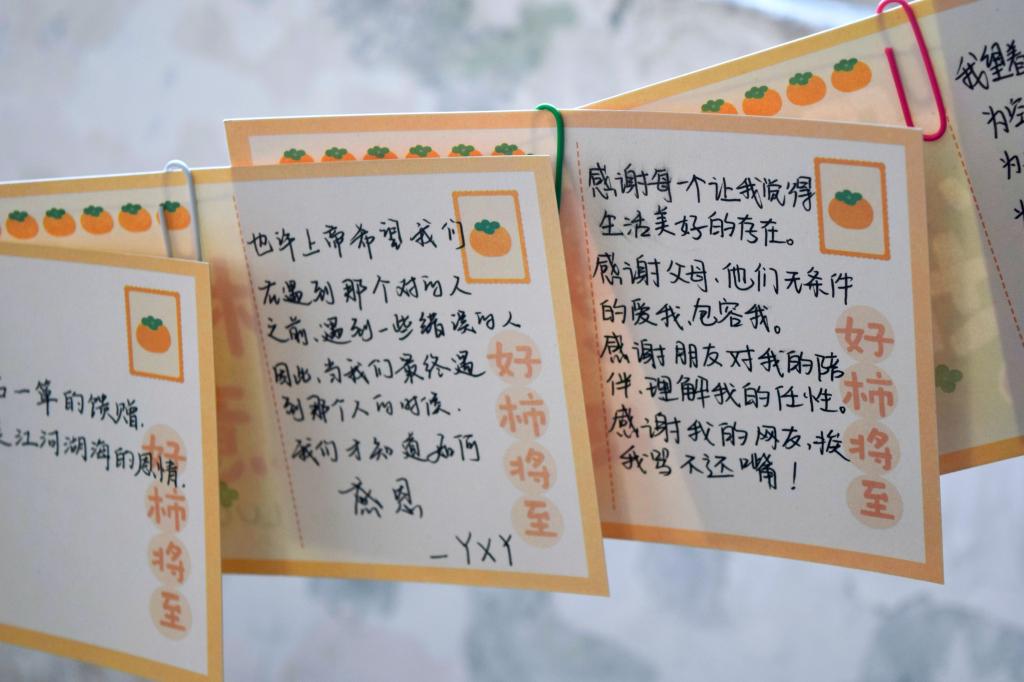 一箪的馈赠,
江河湖海的恩情.
好
柿
将
至
也许上帝希望我们
在遇到那个对的人
之前,遇到一些错误的人
因此,当我们最终遇
到那个人的时候.
我们才知道如何
感恩
—YXY
好
柿
将
至
感谢每一个让我觉得
生活美好的存在。
感谢父母、他们无条件
的爱我,包容我。
感谢朋友对我的陪
伴,理解我的任性。
感谢我的网友,挨
我骂不还嘴!
好
柿
将
至
我望着
为
为